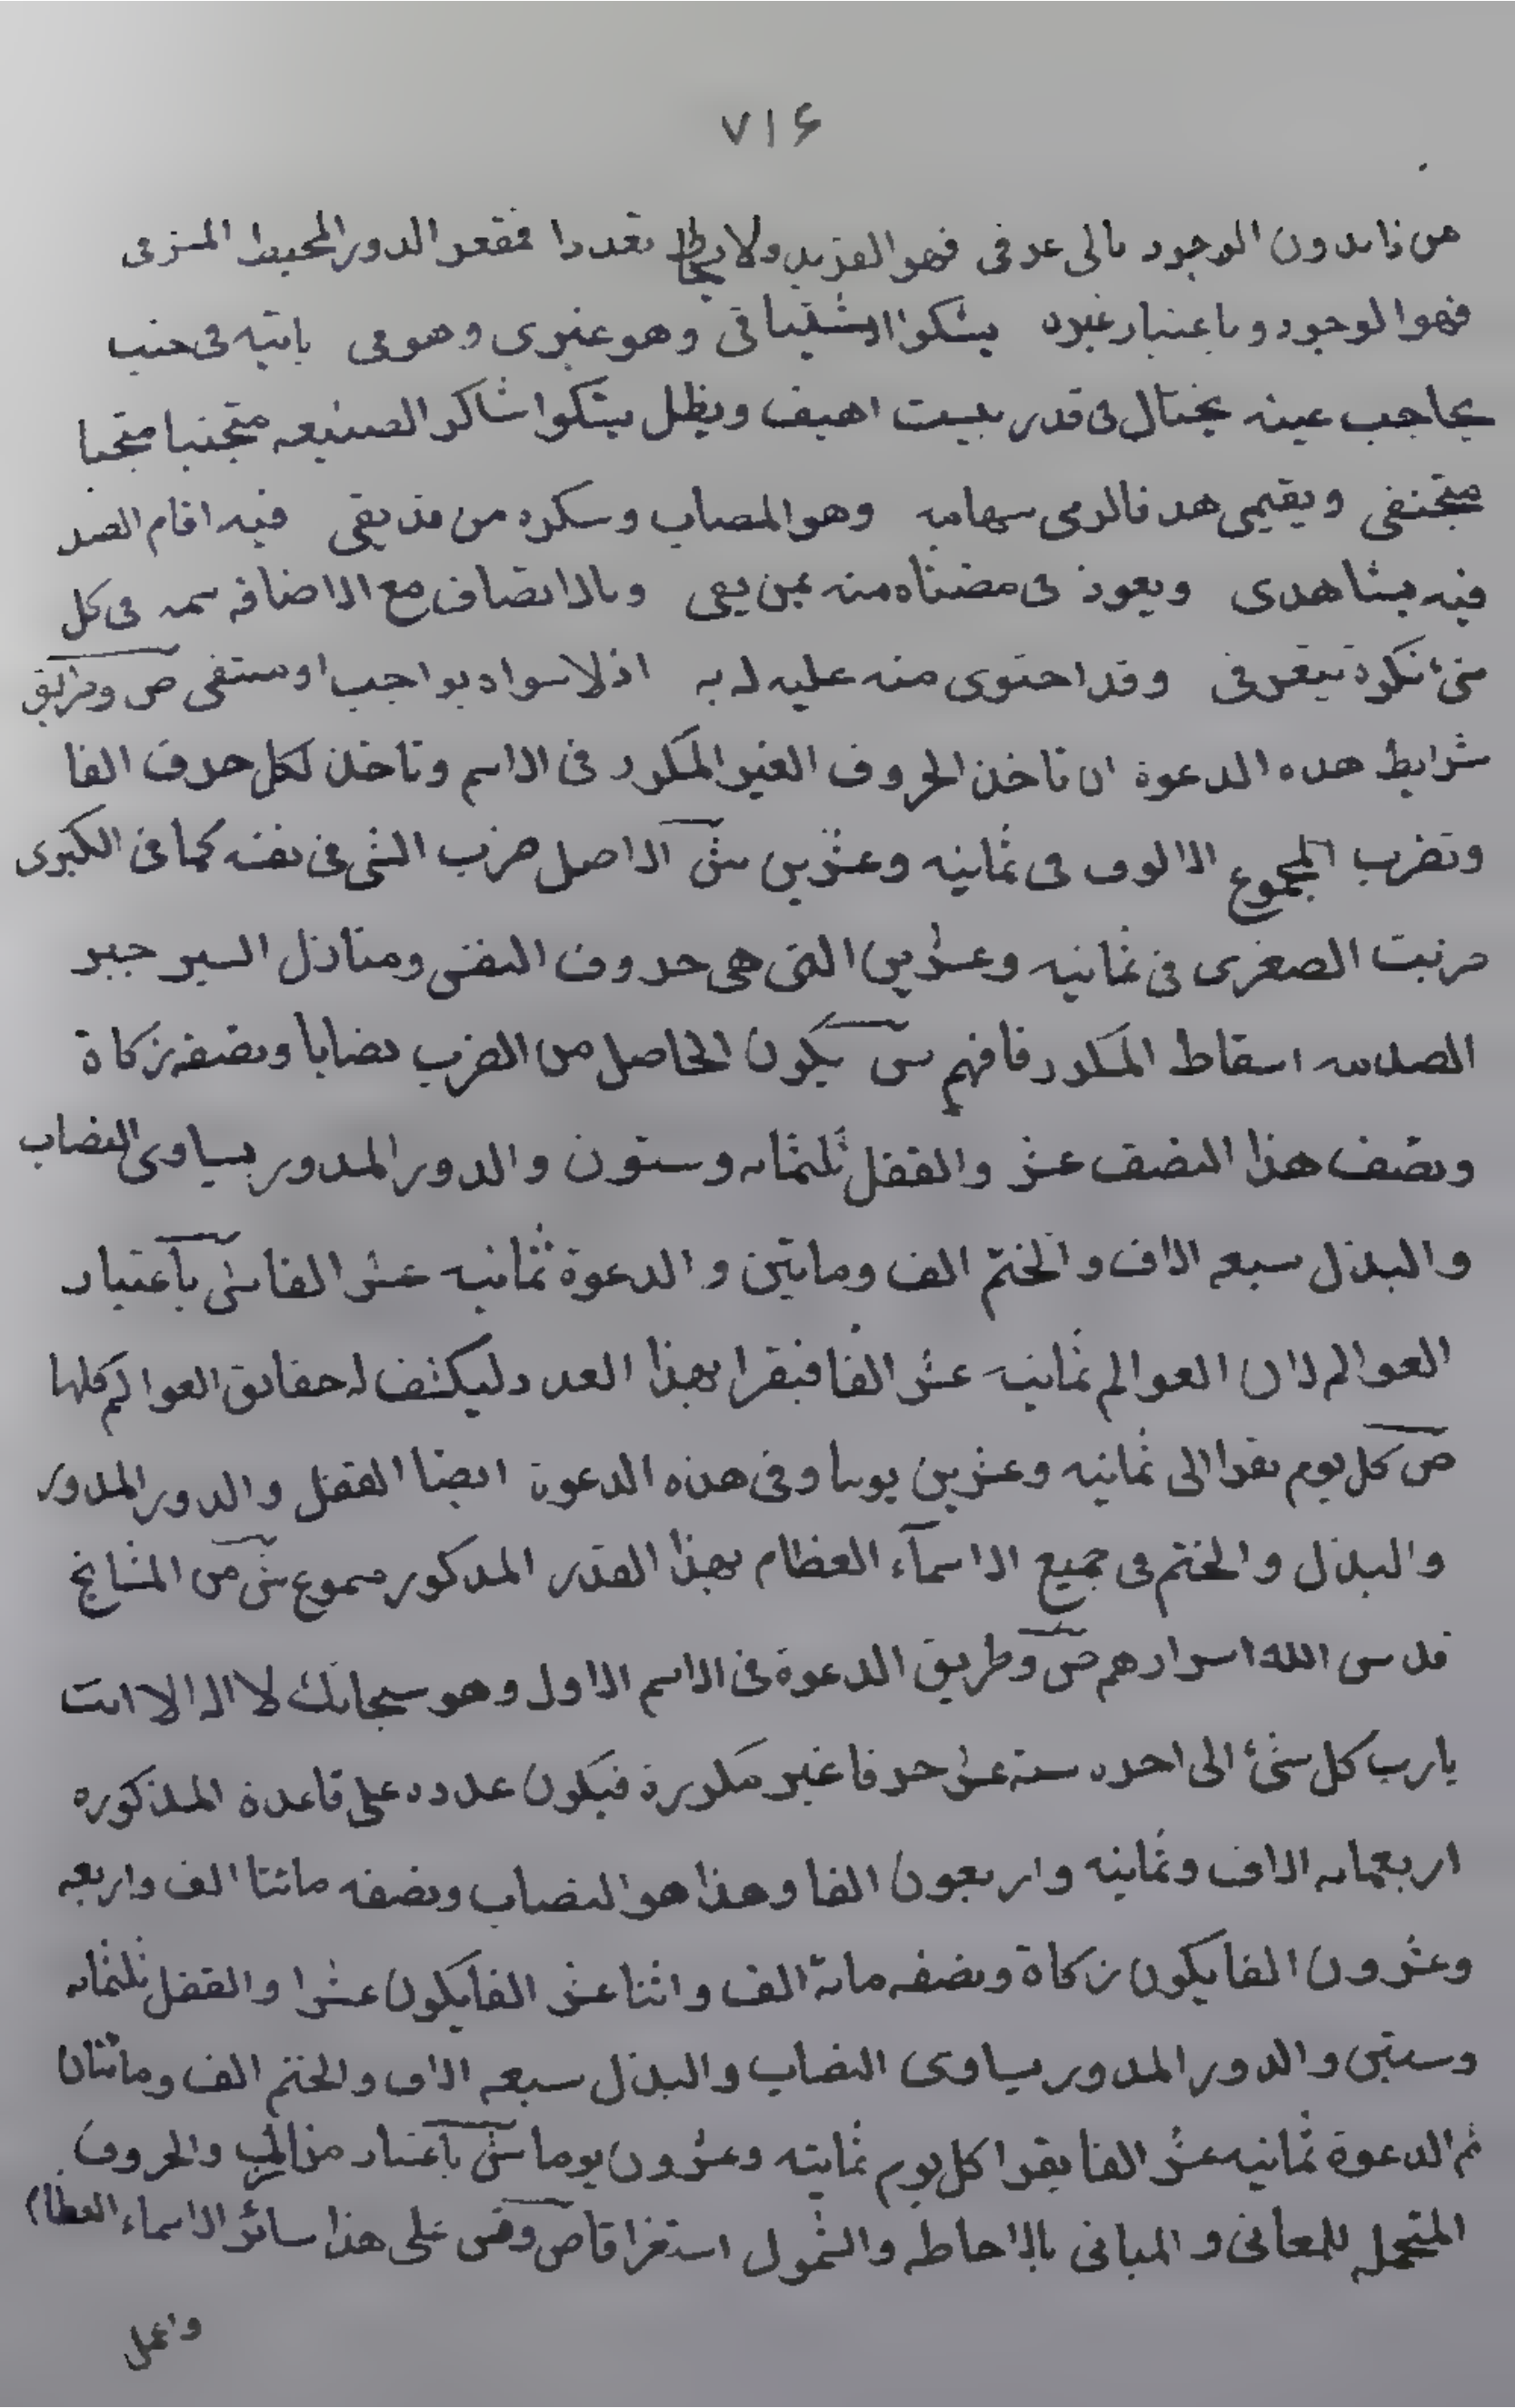 ٧١۶
من ذا بدون الوجود بالى عرفى فهو الفريد ولا يحاط تعددا فمقعر الدور المحيط
فهو الوجود وباعتبار غيره يشكو اشتياقى وهو عنبرى وهو فى
بحاجب عينه يختال فى قدر اهيف ويظل يشكوا شاكر الصنيعه متجنبا
ويقيمى هدفا لرمى سهامه وهو المصاب وسكره من فيه اقام الصد
فيه يشاهدى ويعود فى منه بمن يعى وبالاتصاف مع الاضافه سمه فى كل
شئ نكرة وقد احتوى منه عليه له به اذ لا سواه بواجب او منتفى ص وطريق
شرايط هده الدعوة ان تاخذ الحروف الغير المكرر فى الاسم وتاخذ لكل حرف الفا
وتضرب المجموع الالوف فى ثمانيه وعشرين ش الاصل ضرب الشى فى نفسه كما فى الكبرى
الصغرى فى ثمانيه وعشرين التى هى حروف النفس ومنازل السير جبر
اسقاط المكرر فافهم ش يكون الحاصل من الضرب نصابا ونصفه زكاة
ونصف هذا النصف عشر والقفل ثلثمايه وستون والدور المدور يساوى النصاب
والبذل سبعه الاف والختم الف ومايتين والدعوة ثمانيه عشر الفا ش باعتبار
العوالم لان العوالم ثمانيه عشر الفا فيقرا بهذا العدد ليكشف له حقايق العوالم كلها
ص كل يوم يقرا الى ثمانيه وعشرين يوما وفى هذه الدعوة ايضا القفل والدور المدور
والبذل والختم فى جميع الاسمآء العظام بهذا القدر المدكور مسموع ش من المشايخ
قدس الله اسرارهم ص وطريق الدعوة فى الاسم الاول وهو سبحانك لا اله الا انت
يارب كل شئ الى اخره ستة عشر حرفا غير مكررة فيكون عدده على قاعدة المذكوره
اربعمايه الاف وثمانيه واربعون الفا وهذا هو النصاب ونصفه مائتا الف واربعه
وعشرون الفا يكون زكاة ونصفه ماية الف واثنا عشر الفا يكون عشرا والقفل ثلثمايه
وستين والدور المدور يساوى النصاب والبذل سبعه الاف والختم الف ومائتان
ثم الدعوة ثمانيه عشر الفا يقرا كل يوم ثمانيه وعشرون يوما ش باعتبار والحروف
للمعانى والمبانى بالاحاطه والشمول استغراقا ص وقس على هذا سائر الاسماء العظام
واعمل